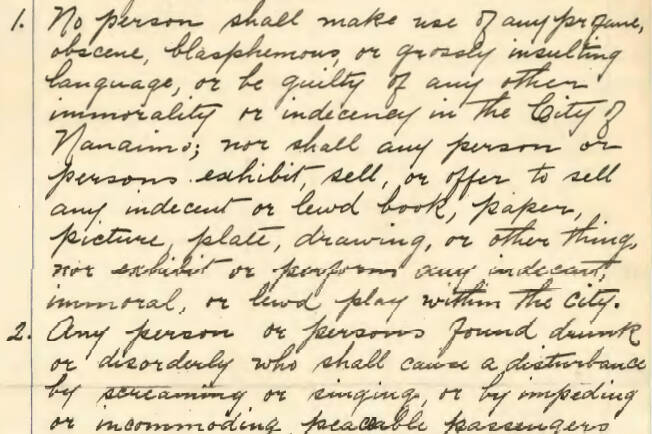 1. No person shall make use of any profane,
obscene, blasphemous, or grossly insulting
language, or be guilty of any other
immorality or indecency in the City of
Nanaimo; nor shall any person or
persons exhibit, sell, or offer to sell
any indecent or lewd book, paper,
picture, plate, drawing, or other thing,
nor exhibit or perform any indecent,
immoral, or lewd play within the city.
2. Any person or persons found drunk
or disorderly who shall cause a disturbance
by screaming or singing, or by impeding
or incommoding peaceable passengers